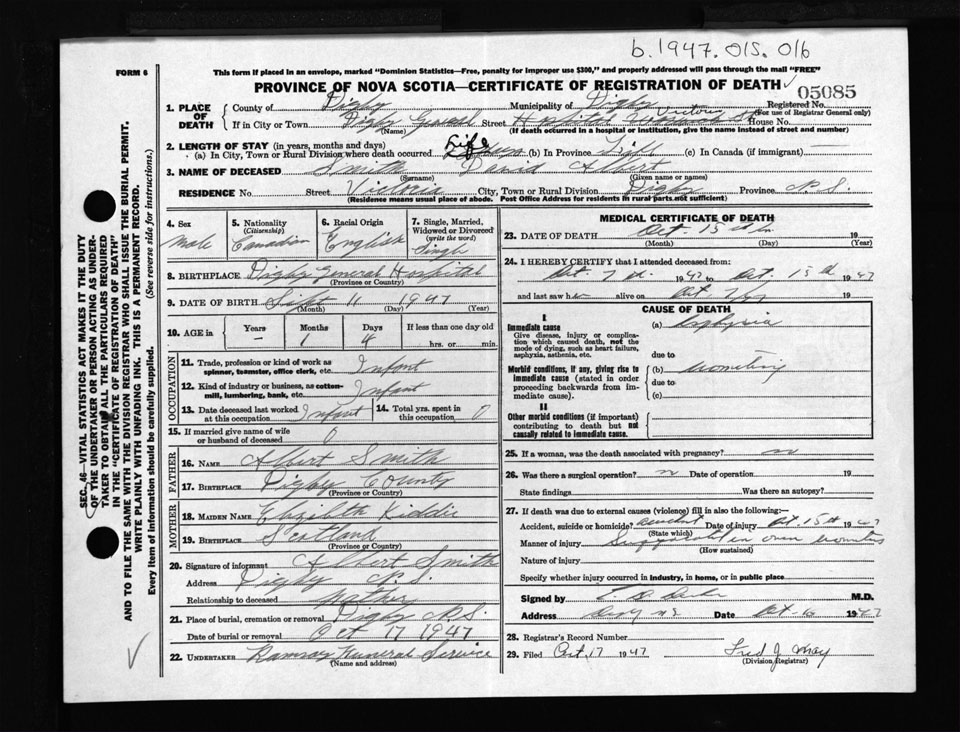 b. 1947. 015. 016
FORM 6
This form if placed in an envelope, marked "Dominion Statistics—Free, penalty for improper use $300," and properly addressed will pass through the mail "FREE"
PROVINCE OF NOVA SCOTIA—CERTIFICATE OF REGISTRATION OF DEATH
05085
1. PLACE OF DEATH
County of Digby Municipality of Digby Registered No.
(For use of Registrar General only)
If in City or Town Digby General Street Hospital Victoria St House No.
(Name) (If death occurred in a hospital or institution, give the name instead of street and number)
2. LENGTH OF STAY (in years, months and days)
(a) In City, Town or Rural Division where death occurred Life (b) In Province Life (c) In Canada (if immigrant)
3. NAME OF DECEASED Smith David Albert
(Surname) (Given name or names)
RESIDENCE No Street Victoria City, Town or Rural Division Digby Province N.S.
(Residence means usual place of abode. Post Office Address for residents in rural parts not sufficient)
SEC. 46—VITAL STATISTICS ACT MAKES IT THE DUTY
OF THE UNDERTAKER OR PERSON ACTING AS UNDER-
TAKER TO OBTAIN ALL THE PARTICULARS REQUIRED
IN THE "CERTIFICATE OF REGISTRATION OF DEATH"
AND TO FILE THE SAME WITH THE DIVISION REGISTRAR WHO SHALL ISSUE THE BURIAL PERMIT.
WRITE PLAINLY WITH UNFADING INK. THIS IS A PERMANENT RECORD.
Every item of information should be carefully supplied. (See reverse side for instructions.)
4. Sex
Male
5. Nationality
(Citizenship)
Canadian
6. Racial Origin
English
7. Single, Married,
Widowed or Divorced
(write the word)
Single
8. BIRTHPLACE Digby General Hospital
(Province or Country)
9. DATE OF BIRTH Sept 11 1947
(Month) (Day) (Year)
10. AGE in Years Months Days If less than one day old
– 1 4 hrs. or min.
OCCUPATION
11. Trade, profession or kind of work as
spinner, teamster, office clerk, etc. Infant
12. Kind of industry or business, as cotton-
mill, lumbering, bank, etc. Infant
13. Date deceased last worked
at this occupation Infant
14. Total yrs. spent in
this occupation 0
15. If married give name of wife
or husband of deceased 0
FATHER
16. NAME Albert Smith
17. BIRTHPLACE Digby County
(Province or Country)
MOTHER
18. MAIDEN NAME Kiddie
19. BIRTHPLACE Scotland
(Province or Country)
20. Signature of informant Albert Smith
Address Digby N.S.
Relationship to deceased
21. Place of burial, cremation or removal Digby N.S.
Date of burial or removal Oct 17 1947
22. UNDERTAKER Ramsay Funeral Service
(Name and address)
MEDICAL CERTIFICATE OF DEATH
23. DATE OF DEATH Oct. 15th 19
(Month) (Day) (Year)
24. I HEREBY CERTIFY that I attended deceased from:
Oct. 7 th 1947 to Oct. 15th 1947
and last saw h alive on Oct. 7/47 19
CAUSE OF DEATH
I
Immediate cause
Give disease, injury or complica-
tion which caused death, not the
mode of dying, such as heart failure,
asphyxia, asthenia, etc.
(a) Asphyxia
due to
Morbid conditions, if any, giving rise to
immediate cause (stated in order
proceeding backwards from im-
mediate cause).
(b) vomiting
due to
(c)
II
Other morbid conditions (if important)
contributing to death but not
causally related to immediate cause.
25. If a woman, was the death associated with pregnancy?
26. Was there a surgical operation? Date of operation 19
State findings Was there an autopsy?
27. If death was due to external causes (violence) fill in also the following:—
Accident, suicide or homicide? accident Date of injury Oct. 15th 1947
(State which)
Manner of injury Suffocated in own vomitus
(How sustained)
Nature of injury
Specify whether injury occurred in industry, in home, or in public place
Signed by M.D.
Address Date Oct 16 1947
28. Registrar's Record Number
29. Filed Oct. 17 1947 Fred J. May
(Division Registrar)